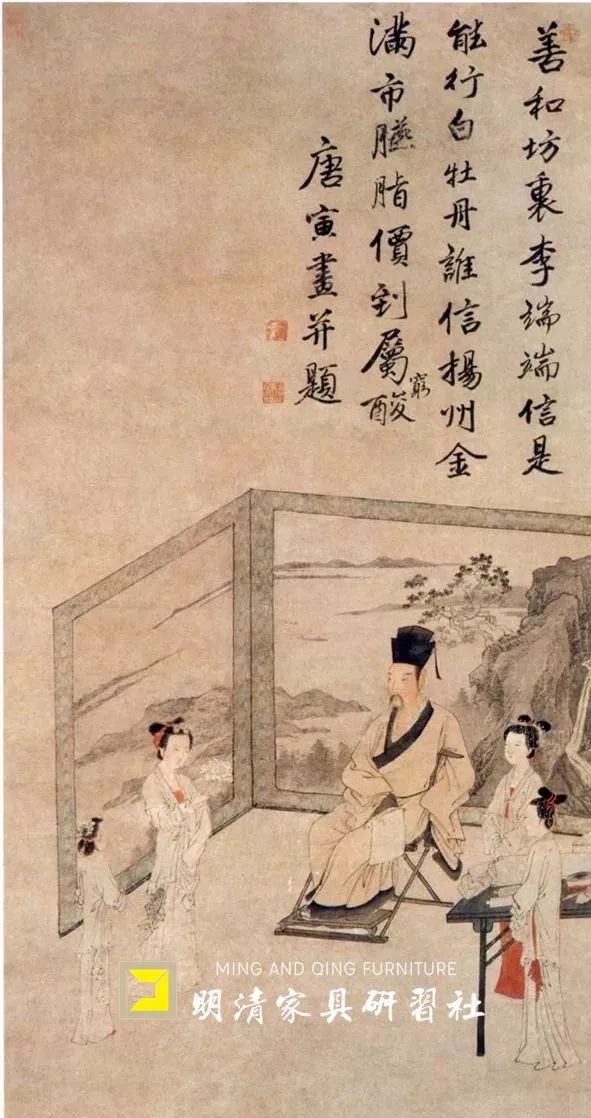 善和坊裏李端端信是
能行白牡丹誰信揚州金
滿市臙脂價到屬窮酸
唐寅畫并題
MING AND QING FURNITURE
明清家具研習社